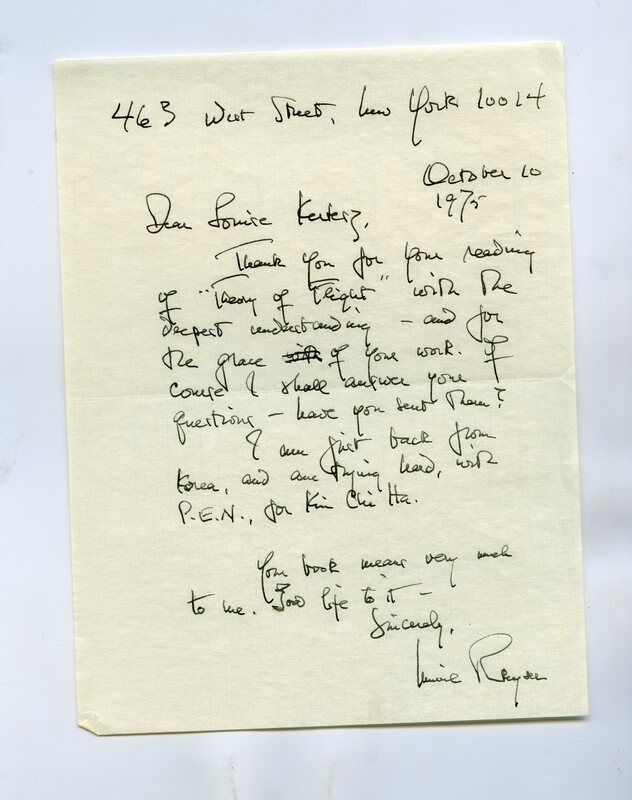 463 West Street, New York 10014
October 10
1975
Dear Louise Kertesz,
Thank you for your reading
of "Theory of Flight" with the
deepest understanding — and for
the grace with of your work. Of
course I shall answer your
questions — have you sent them?
I am just back from
Korea, and am trying hard, with
P.E.N., for Kim Chi Ha.
Your book means very much
to me. Good life to it —
Sincerely,
Muriel Rukeyser